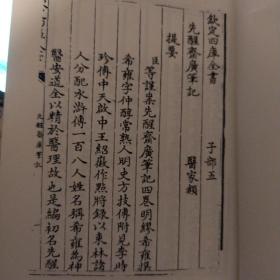 欽定四庫全書　子部五
先醒齋廣筆記　醫家類
提要
臣等謹案先醒齋廣筆記四卷明繆希雍撰
希雍字仲醇常熟人明史方技傳附見李時
珍傳中天啟中王紹徽作點將錄以東林諸
人分配水滸傳一百八人姓名稱希雍為神
醫安道全以精於醫理故也是編初名先醒
先醒齋廣筆記